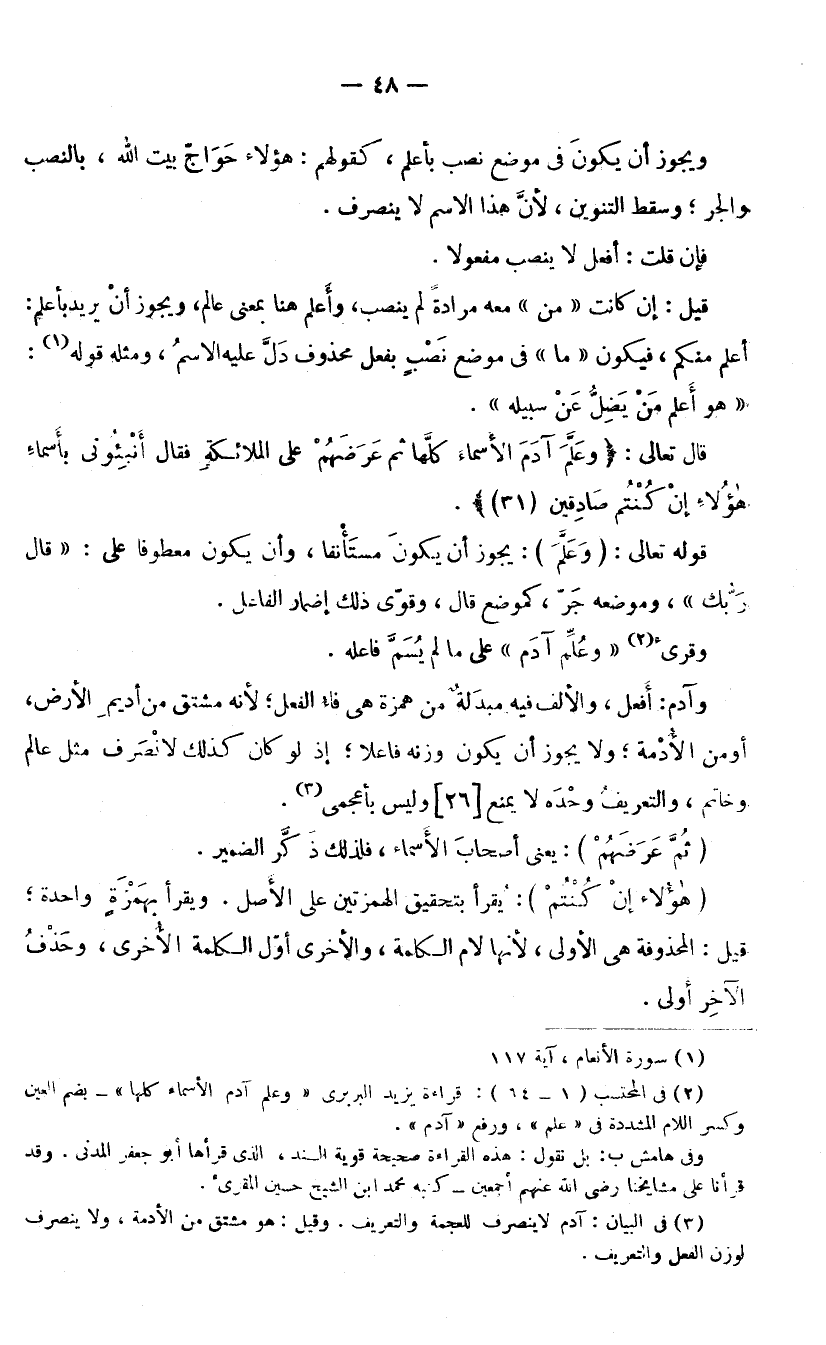 — ٤٨ —
ويجوز أن يكونَ فى موضع نصب بأعلم ، كقولهم : هؤلاء حَوَاجّ بيت الله ، بالنصب
والجر ؛ وسقط التنوين ، لأنَّ هذا الاسم لا ينصرف .
فإن قلت : أفعل لا ينصب مفعولا .
قيل : إن كانت « من » معه مرادةً لم ينصب، وأَعلم هنا بمعنى عالم، ويجوز أنْ يريد بأعلم:
أعلم منكم ، فيكون « ما » فى موضع نَصْبٍ بفعل محذوف دَلَّ عليه الاسمُ ، ومثله قوله(١) :
« هو أَعلم مَنْ يَضِلُّ عَنْ سبيله » .
قال تعالى : ﴿ وعَلَّمَ آدَمَ الأسماءَ كلَّها ثم عَرَضَهُمْ على الملائكةِ فقال أَنْبِئُونى بأَسماءِ
هٰؤُلاءِ إنْ كُنْتُم صَادِقين (٣١)﴾ .
قوله تعالى : ( وَعَلَّمَ ) : يجوز أن يكونَ مستَأْنفا ، وأن يكون معطوفا على : « قال
رَبُّك » ، وموضعه جَرّ ، كموضع قال ، وقوّى ذلك إضمار الفاعل .
وقرىء(٢) « وعُلِّم آدَم » على ما لم يُسَمَّ فاعله .
وآدم: أَفعل ، والألف فيه مبدَلةٌ من همزة هى فاء الفعل؛ لأنه مشتق من أديمِ الأرض،
أو من الأُدْمة ؛ ولا يجوز أن يكون وزنه فاعلا ؛ إذ لو كان كذلك لانْصَرف مثل عالم
وخاتم ، والتعريفُ وحْدَه لا يمنع [٢٦] وليس بأعجمى(٣) .
( ثُمَّ عَرَضَهُمْ ) : يعنى أصحابَ الأَسماء ، فلذلك ذَكَّر الضمير .
( هٰؤُلاء إنْ كُنْتُمْ ) : يُقرأ بتحقيق الهمزتين على الأَصل . ويقرأ بِهَمْزَةٍ واحدة ؛
قيل : المحذوفة هى الأولى ، لأنها لام الكلمة ، والأخرى أوّل الكلمة الأُخرى ، وحَذْفُ
الآخِر أَولى .
(١) سورة الأنعام ، آية ١١٧
(٢) فى المحتسب ( ١ ــ ٦٤ ) : قراءة يزيد البربرى « وعلم آدم الأسماء كلها » ــ بضم العين
وكسر اللام المشددة فى « علم » ، ورفع « آدم » .
وفى هامش ب: بل نقول : هذه القراءة صحيحة قوية السند ، الذى قرأها أبو جعفر المدنى . وقد
قرأنا على مشايخنا رضى الله عنهم أجمعين ــ كتبه محمد ابن الشيخ حسين المقرىء .
(٣) فى البيان : آدم لاينصرف للعجمة والتعريف . وقيل : هو مشتق من الأدمة ، ولا ينصرف
لوزن الفعل والتعريف .